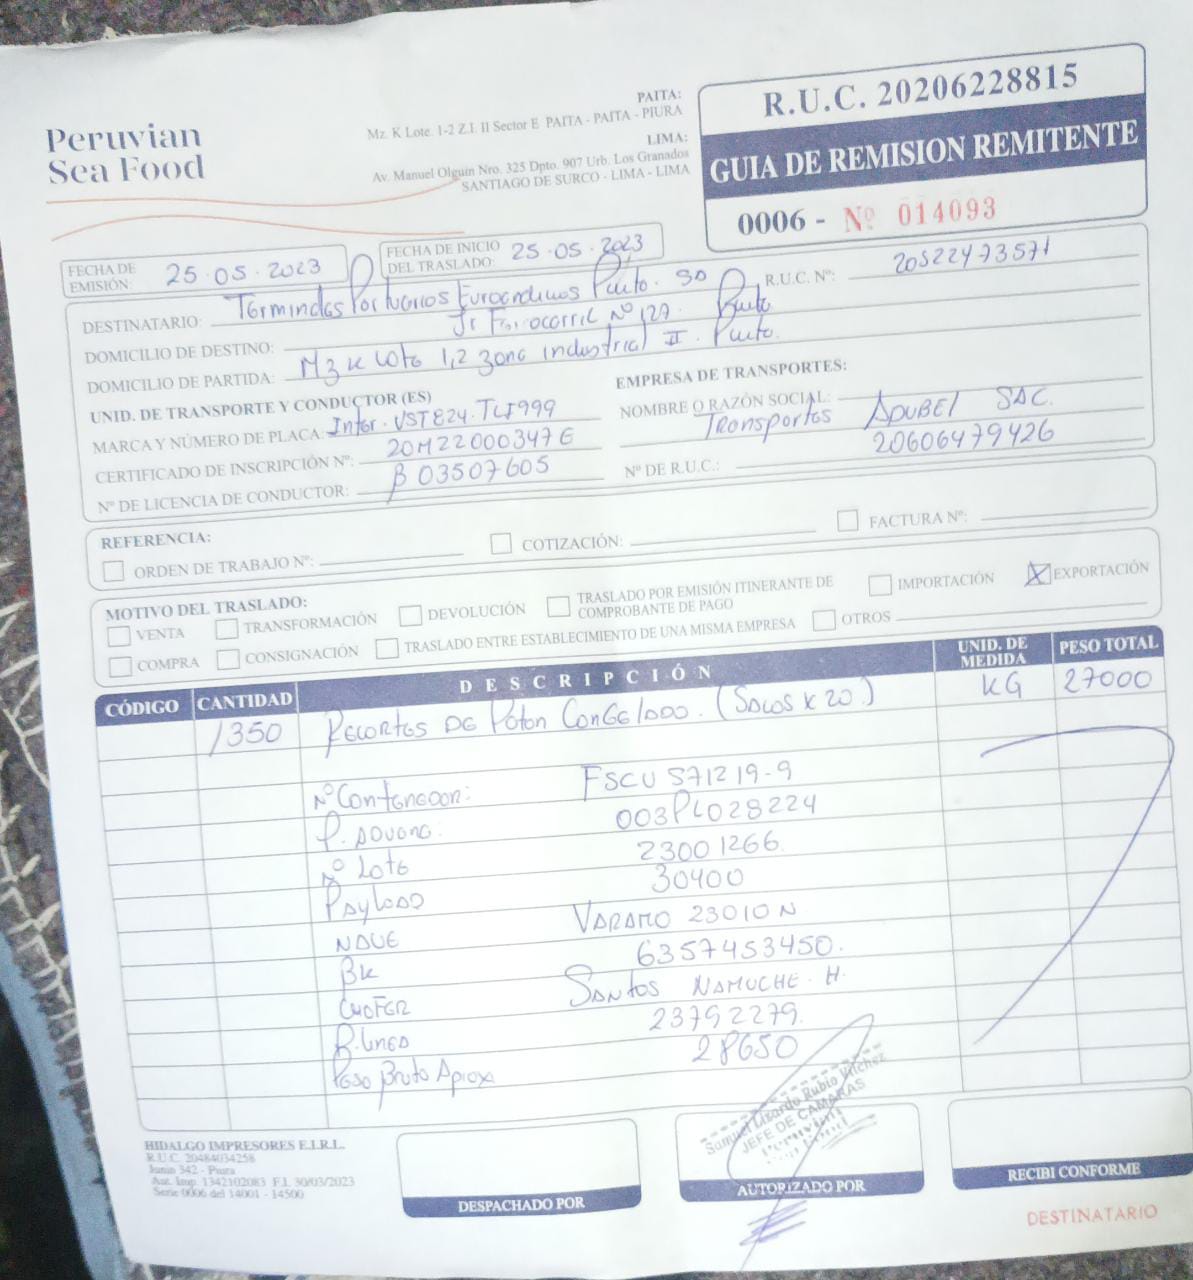 Peruvian
Sea Food
PAITA:
Mz. K Lote. 1-2 Z.I. II Sector E PAITA - PAITA - PIURA
LIMA:
Av. Manuel Olguin Nro. 325 Dpto. 907 Urb. Los Granados
SANTIAGO DE SURCO - LIMA - LIMA
R.U.C. 20206228815
GUIA DE REMISION REMITENTE
0006 - Nº 014093
FECHA DE EMISIÓN: 25.05.2023
FECHA DE INICIO DEL TRASLADO: 25.05.2023
DESTINATARIO: Terminales Portuarios Euroandinos Paita. SA R.U.C. Nº: 20522473571
DOMICILIO DE DESTINO: Jr Ferrocarril Nº 127. Paita
DOMICILIO DE PARTIDA: Mz K Lote 1,2 Zona industrial II. Paita.
UNID. DE TRANSPORTE Y CONDUCTOR (ES)
EMPRESA DE TRANSPORTES:
MARCA Y NÚMERO DE PLACA: Inter. VST824. TLI999
NOMBRE O RAZÓN SOCIAL: Transportes ADUBEI SAC.
CERTIFICADO DE INSCRIPCIÓN Nº: 20M22000347E
Nº DE R.U.C.: 20606479426
Nº DE LICENCIA DE CONDUCTOR: B 03507605
REFERENCIA:
ORDEN DE TRABAJO Nº: COTIZACIÓN: FACTURA Nº:
MOTIVO DEL TRASLADO:
VENTA TRANSFORMACIÓN DEVOLUCIÓN TRASLADO POR EMISIÓN ITINERANTE DE COMPROBANTE DE PAGO IMPORTACIÓN X EXPORTACIÓN
COMPRA CONSIGNACIÓN TRASLADO ENTRE ESTABLECIMIENTO DE UNA MISMA EMPRESA OTROS
CÓDIGO CANTIDAD DESCRIPCIÓN UNID. DE MEDIDA PESO TOTAL
1350 Recortes de Poton Congelado. (Sacos x 20) KG 27000
Nº Contenedor: FSCU 571219-9
P. Aduana: 003PL028224
Nº Lote 23001266.
Payload 30400
Nave VARAMO 23010N
Bk 6357453450.
Chofer Santos Namuche. H.
P. Linea 23792279.
Peso Bruto Aprox 28650
Samuel Lizardo Rubio Vilchez
JEFE DE CAMARAS
HIDALGO IMPRESORES E.I.R.L.
R.U.C. 20484034258
Junin 342 - Piura
Aut. Imp. 1342102083 F.I. 30/03/2023
Serie 0006 del 14001 - 14500
DESPACHADO POR
AUTORIZADO POR
RECIBI CONFORME
DESTINATARIO